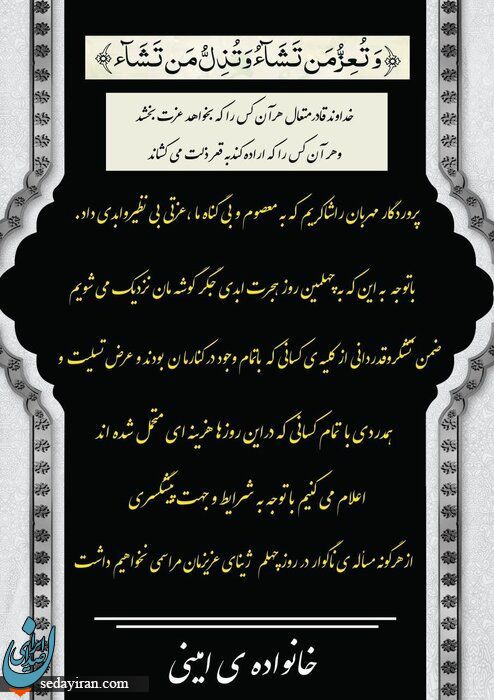 ﴿وَتُعِزُّ مَن تَشَآءُ وَتُذِلُّ مَن تَشَآء﴾
خداوند قادر متعال هر آن کس را که بخواهد عزت بخشد
و هر آن کس را که اراده کند به قعر ذلت می کشاند
پروردگار مهربان را شاکریم که به معصوم و بی گناه ما ، عزتی بی نظیر و ابدی داد .
باتوجه به این که به چهلمین روز هجرت ابدی جگر گوشه مان نزدیک می شویم
ضمن تشکر و قدردانی از کلیه ی کسانی که باتمام وجود در کنارمان بودند و عرض تسلیت و
همدردی با تمام کسانی که در این روزها هزینه ای متحمل شده اند
اعلام می کنیم باتوجه به شرایط و جهت پیشگسری
از هرگونه مسأله ی ناگوار در روز چهلم ژینای عزیزمان مراسمی نخواهیم داشت
خانواده ی امینی
صدای ایران
sedayiran.com